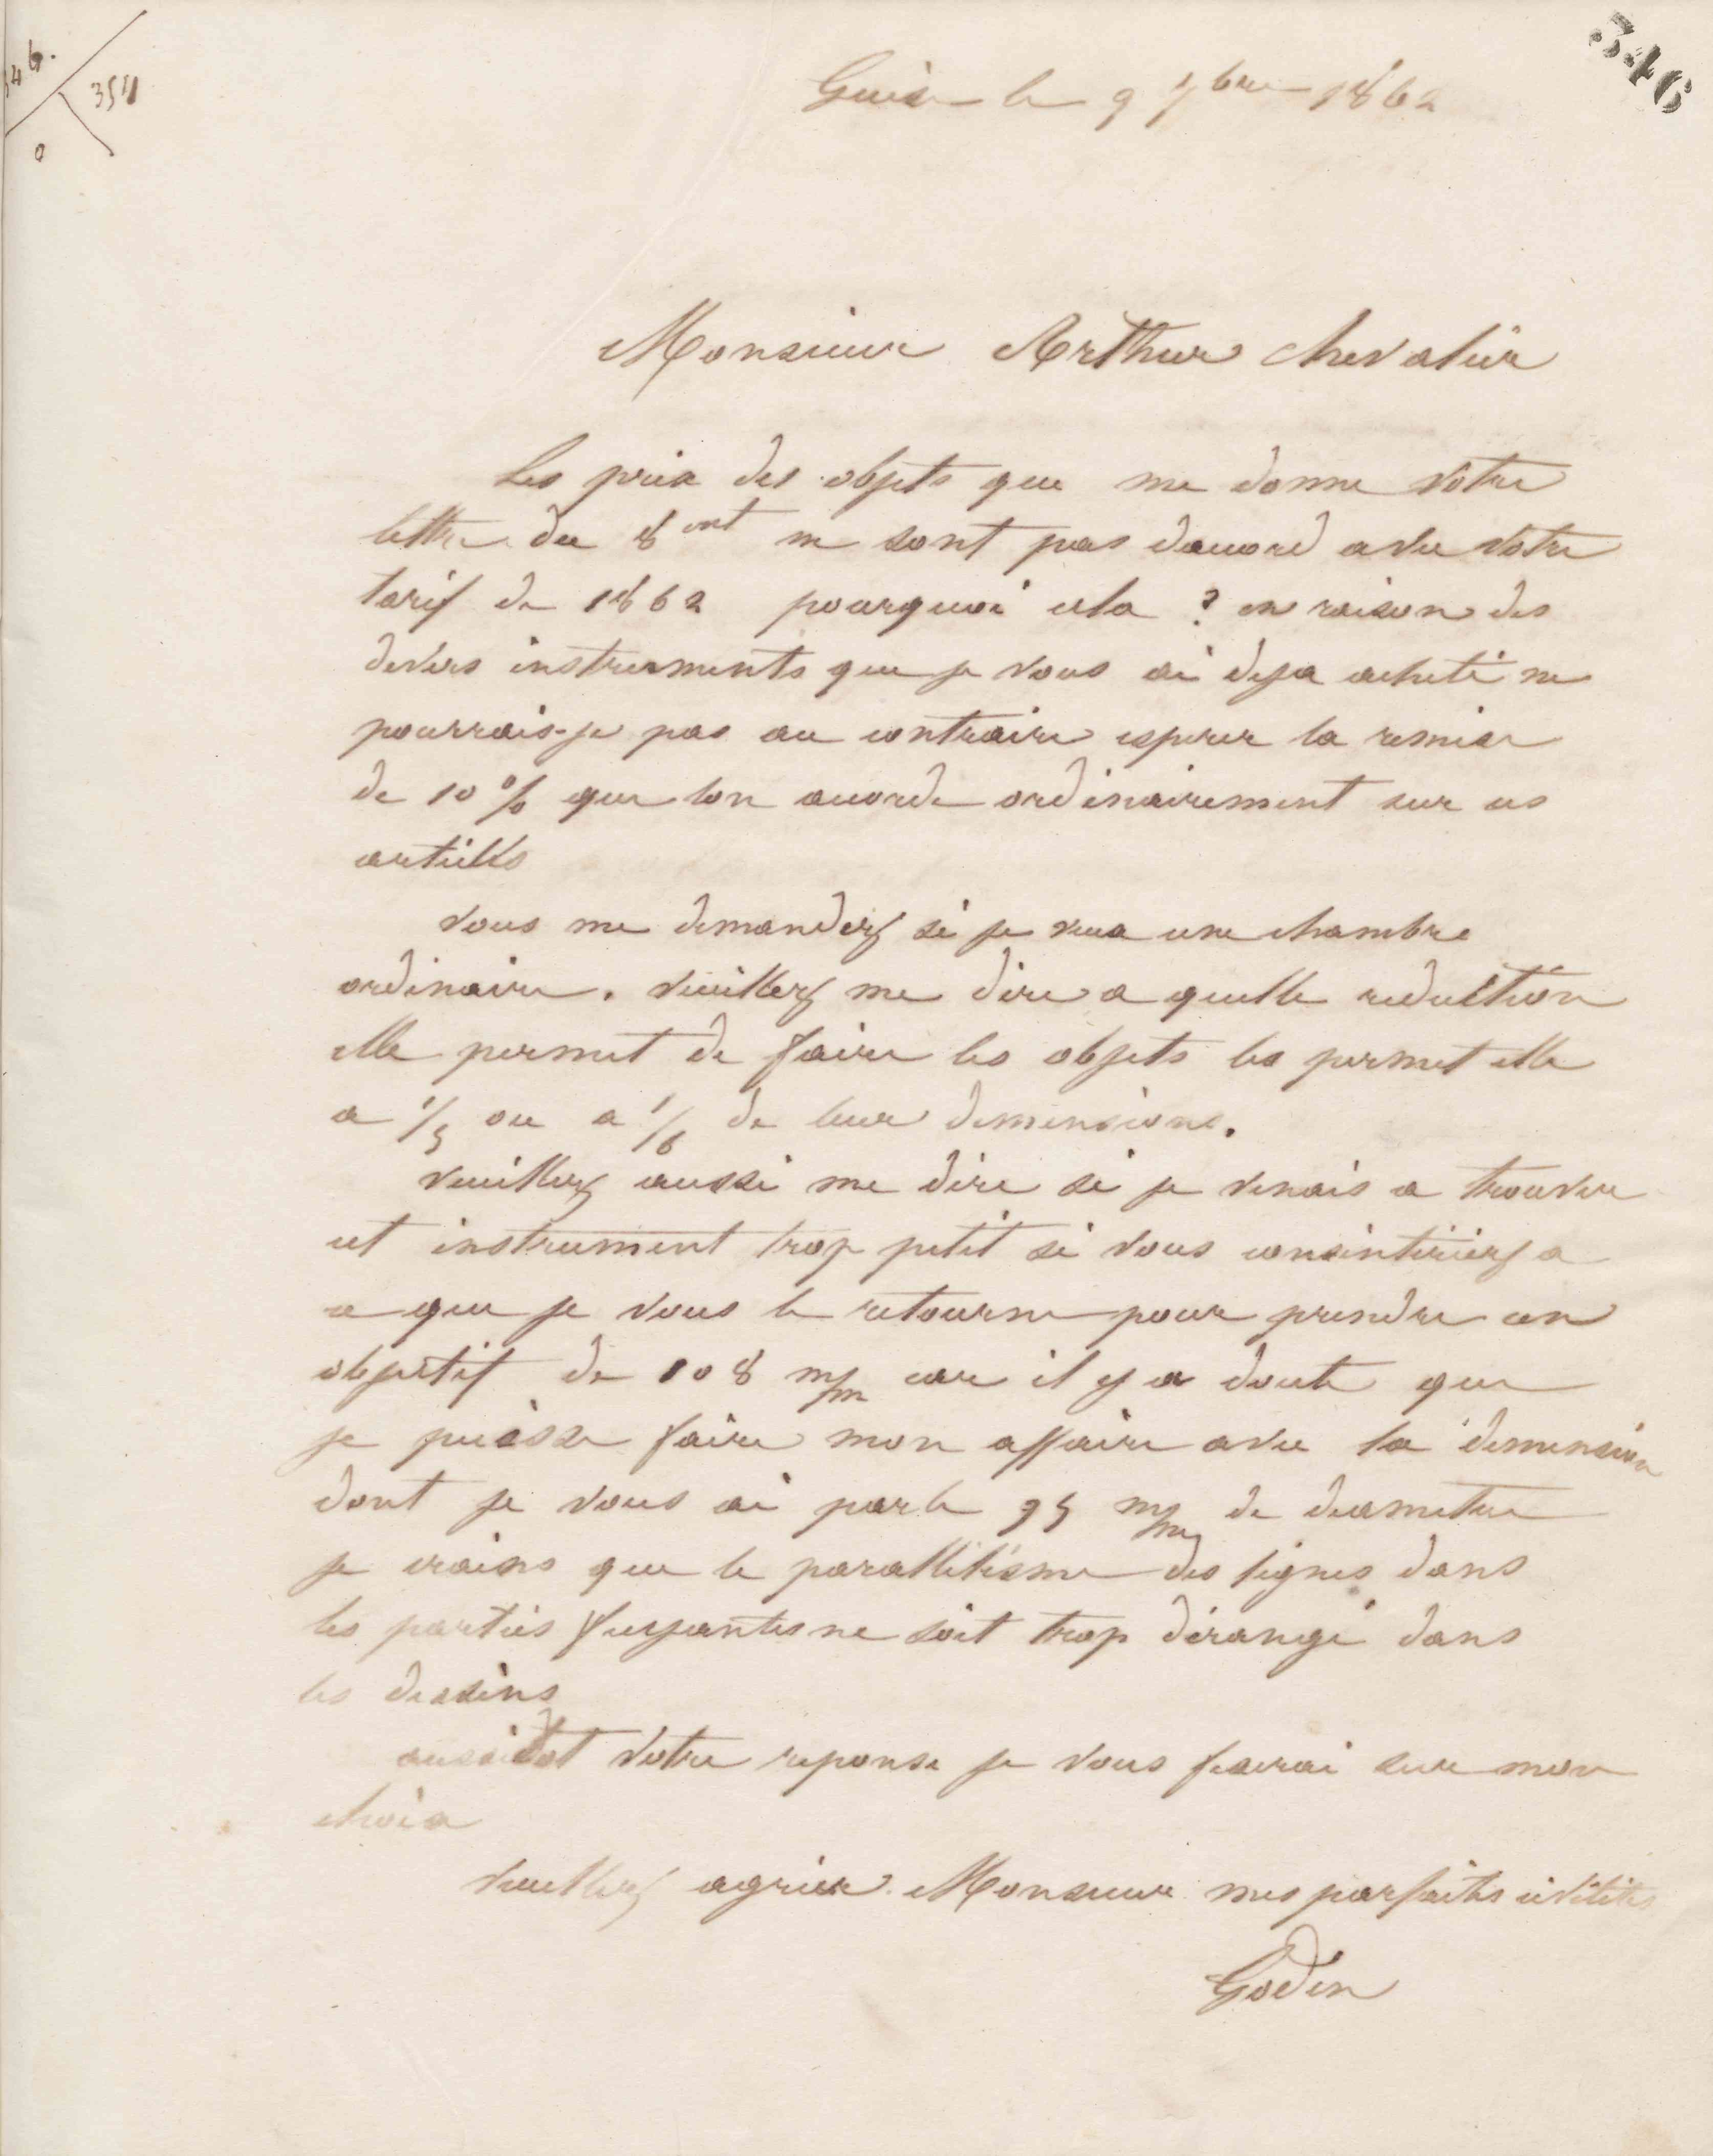 346.
351
0
346
Guise le 9 7bre 1862
Monsieur Arthur Chevalier
Les prix des objets que me donne votre
lettre du 8 ont ne sont pas daccord avec votre
tarif de 1862 pourquoi cela ? en raison des
divers instruments que je vous ai deja acheté ne
pourrais-je pas au contraire esperer la remise
de 10 % que lon accorde ordinairement sur ces
articles
Vous me demandez si je veux une chambre
ordinaire. Veuillez me dire a quelle reduction
elle permet de faire les objets les permet elle
a 1/5 ou a 1/6 de leur dimensions.
Veuillez aussi me dire si je venais a trouver
cet instrument trop petit si vous consentiriez a
ce que je vous le retourne pour prendre un
objectif de 108 m/m car il y a doute que
je puisse faire mon affaire avec la dimension
dont je vous ai parlé 95 m/m de diametre
je crains que le parallélisme des lignes dans
les parties fuyantes ne soit trop dérangé dans
les dessins
aussitot votre reponse je vous fixerai sur mon
choix
Veuillez agréer Monsieur mes parfaites civilités
Godin